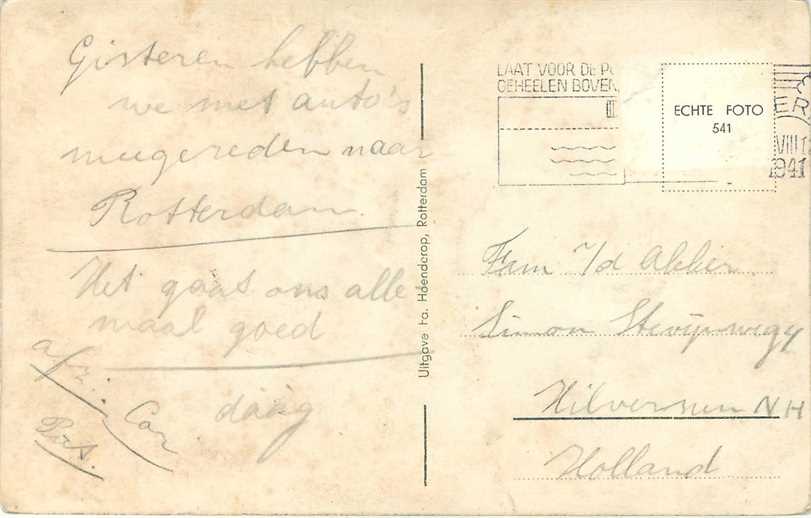 Gisteren hebben
we met auto's
meegereden naar
Rotterdam.
Het gaat ons alle
maal goed
daag
Cor
Uitgave Fa. Hoenderop, Rotterdam
LAAT VOOR DE
GEHEELEN BOVEN
ECHTE FOTO
541
ER
VIII
1941
Fam v/d Akker
Simon Stevijnweg
Hilversum NH
Holland